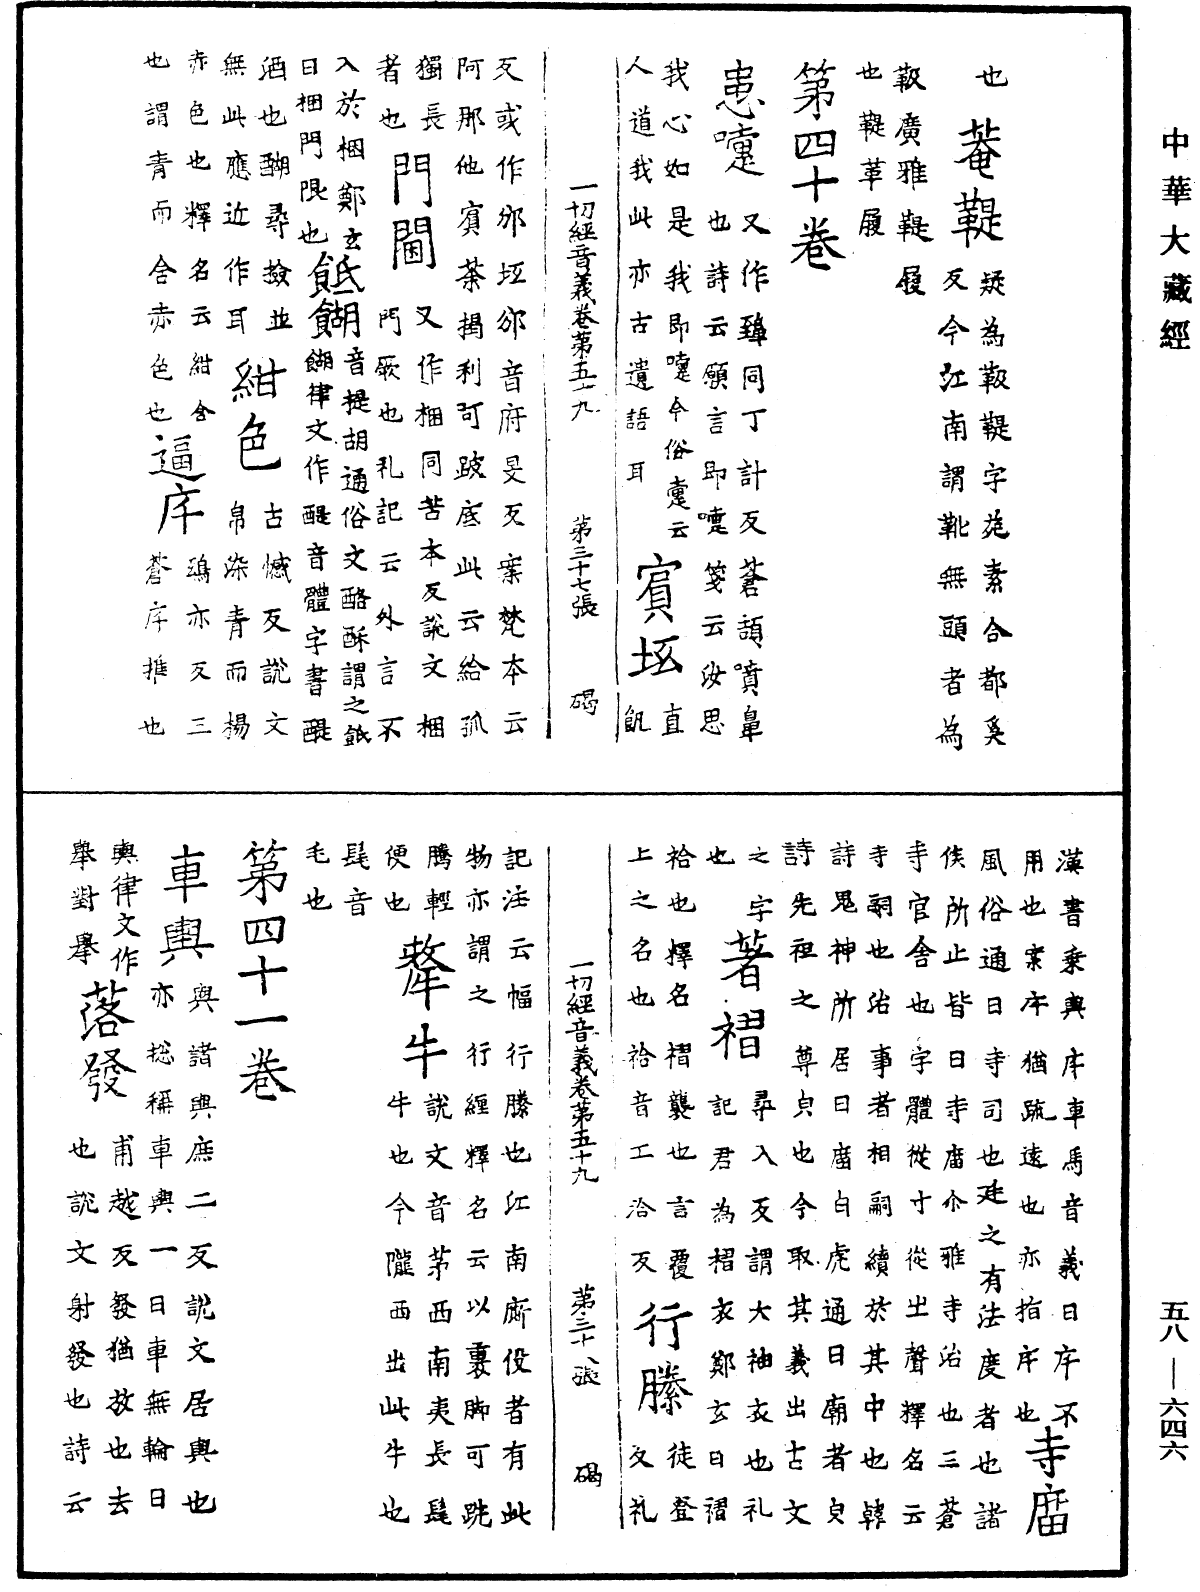 中華大藏經
也菴鞮疑為䩕鞮字菀素合都奚
䩕廣雅鞮屐反今江南謂靴無頭者為
也鞮革履
第四十卷
患嚏又作𪖷同丁計反蒼頡嚏噴鼻
也詩云願言即嚏箋云汝思
我心如是我即嚏今俗嚏云直
人道我此亦古遺語耳賓坻飢
一切經音義卷第五十九 第三十七張 碣
反或作邠坻邠音府旻反案梵本云
阿那他賓荼揭利呵跛底此云給孤
獨長門閫又作梱同苦本反說文梱
者也門橛也礼記云外言不
入於梱鄭玄䬫餬音提胡通俗文酪酥謂之䬫
曰梱門限也餬律文作醍音體字書醍
酒也醐尋撿並紺色古憾反說文
無此應近作耳帛染青而揚
赤色也釋名云紺含鵶亦反三
也謂青而含赤色也逼斥蒼斥推也
漢書乘輿斥車馬音義曰斥不
用也案斥猶疏遠也亦指斥也寺廟
風俗通曰寺司也廷之有法度者也諸
侯所止皆曰寺廣介雅寺治也三蒼
寺官舍也字體從寸從㞢聲釋名云
寺嗣也治事者相嗣續於其中也韓
詩鬼神所居曰廟白虎通曰廟者皃
詩先祖之尊皃也今取其義出古文
之字著褶尋入反謂大袖衣也礼
也記君為褶衣鄭玄曰褶
袷也釋名褶襲也言覆行縢徒登
上之名也袷音工洽反反礼
一切經音義卷第五十九 第三十八張 碣
記注云幅行縢也江南廝役者有此
物亦謂之行經釋名云以裹脚可跳
騰輕犛牛說文音茅西南夷長髦
便也牛也今隴西出此牛也
髦音
毛也
第四十一卷
車輿與諸輿庶二反說文居輿也
亦摠稱車輿一曰車無輪曰
輿律文作落發甫越反發猶放也去
舉對舉也說文射發也詩云
五八—六四六